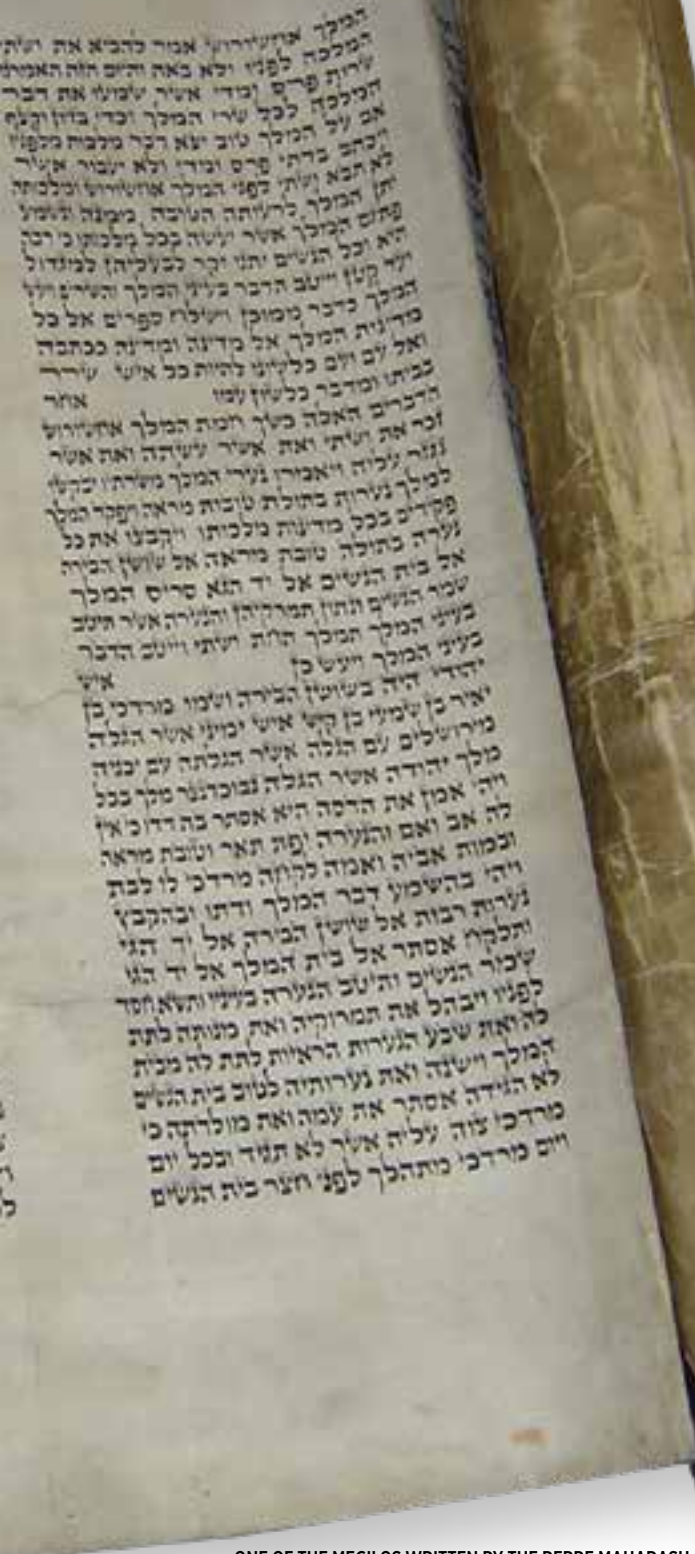 המלך אחשורוש אמר להביא את ושתי
המלכה לפניו ולא באה והיום הזה תאמרנה
שרות פרס ומדי אשר שמעו את דבר
המלכה לכל שרי המלך וכדי בזיון וקצף
אם על המלך טוב יצא דבר מלכות מלפניו
ויכתב בדתי פרס ומדי ולא יעבור אשר
לא תבא ושתי לפני המלך אחשורוש ומלכותה
יתן המלך לרעותה הטובה ממנה ונשמע
פתגם המלך אשר יעשה בכל מלכותו כי רבה
היא וכל הנשים יתנו יקר לבעליהן למגדול
ועד קטן וייטב הדבר בעיני המלך והשרים ויעש
המלך כדבר ממוכן וישלח ספרים אל כל
מדינות המלך אל מדינה ומדינה ככתבה
ואל עם ועם כלשונו להיות כל איש שרר
בביתו ומדבר כלשון עמו אחר
הדברים האלה כשך חמת המלך אחשורוש
זכר את ושתי ואת אשר עשתה ואת אשר
נגזר עליה ויאמרו נערי המלך משרתיו יבקשו
למלך נערות בתולות טובות מראה ויפקד המלך
פקידים בכל מדינות מלכותו ויקבצו את כל
נערה בתולה טובת מראה אל שושן הבירה
אל בית הנשים אל יד הגא סריס המלך
שמר הנשים ונתון תמרקיהן והנערה אשר תיטב
בעיני המלך תמלך תחת ושתי וייטב הדבר
בעיני המלך ויעש כן איש
יהודי היה בשושן הבירה ושמו מרדכי בן
יאיר בן שמעי בן קיש איש ימיני אשר הגלה
מירושלים עם הגלה אשר הגלתה עם יכניה
מלך יהודה אשר הגלה נבוכדנצר מלך בבל
ויהי אמן את הדסה היא אסתר בת דדו כי אין
לה אב ואם והנערה יפת תאר וטובת מראה
ובמות אביה ואמה לקחה מרדכי לו לבת
ויהי בהשמע דבר המלך ודתו ובהקבץ
נערות רבות אל שושן הבירה אל יד הגי
ותלקח אסתר אל בית המלך אל יד הגי
שמר הנשים ותיטב הנערה בעיניו ותשא חסד
לפניו ויבהל את תמרוקיה ואת מנותה לתת
לה ואת שבע הנערות הראיות לתת לה מבית
המלך וישנה ואת נערותיה לטוב בית הנשים
לא הגידה אסתר את עמה ואת מולדתה כי
מרדכי צוה עליה אשר לא תגיד ובכל יום
ויום מרדכי מתהלך לפני חצר בית הנשים
ONE OF THE MEGILOS WRITTEN BY THE REBBE MAHARASH